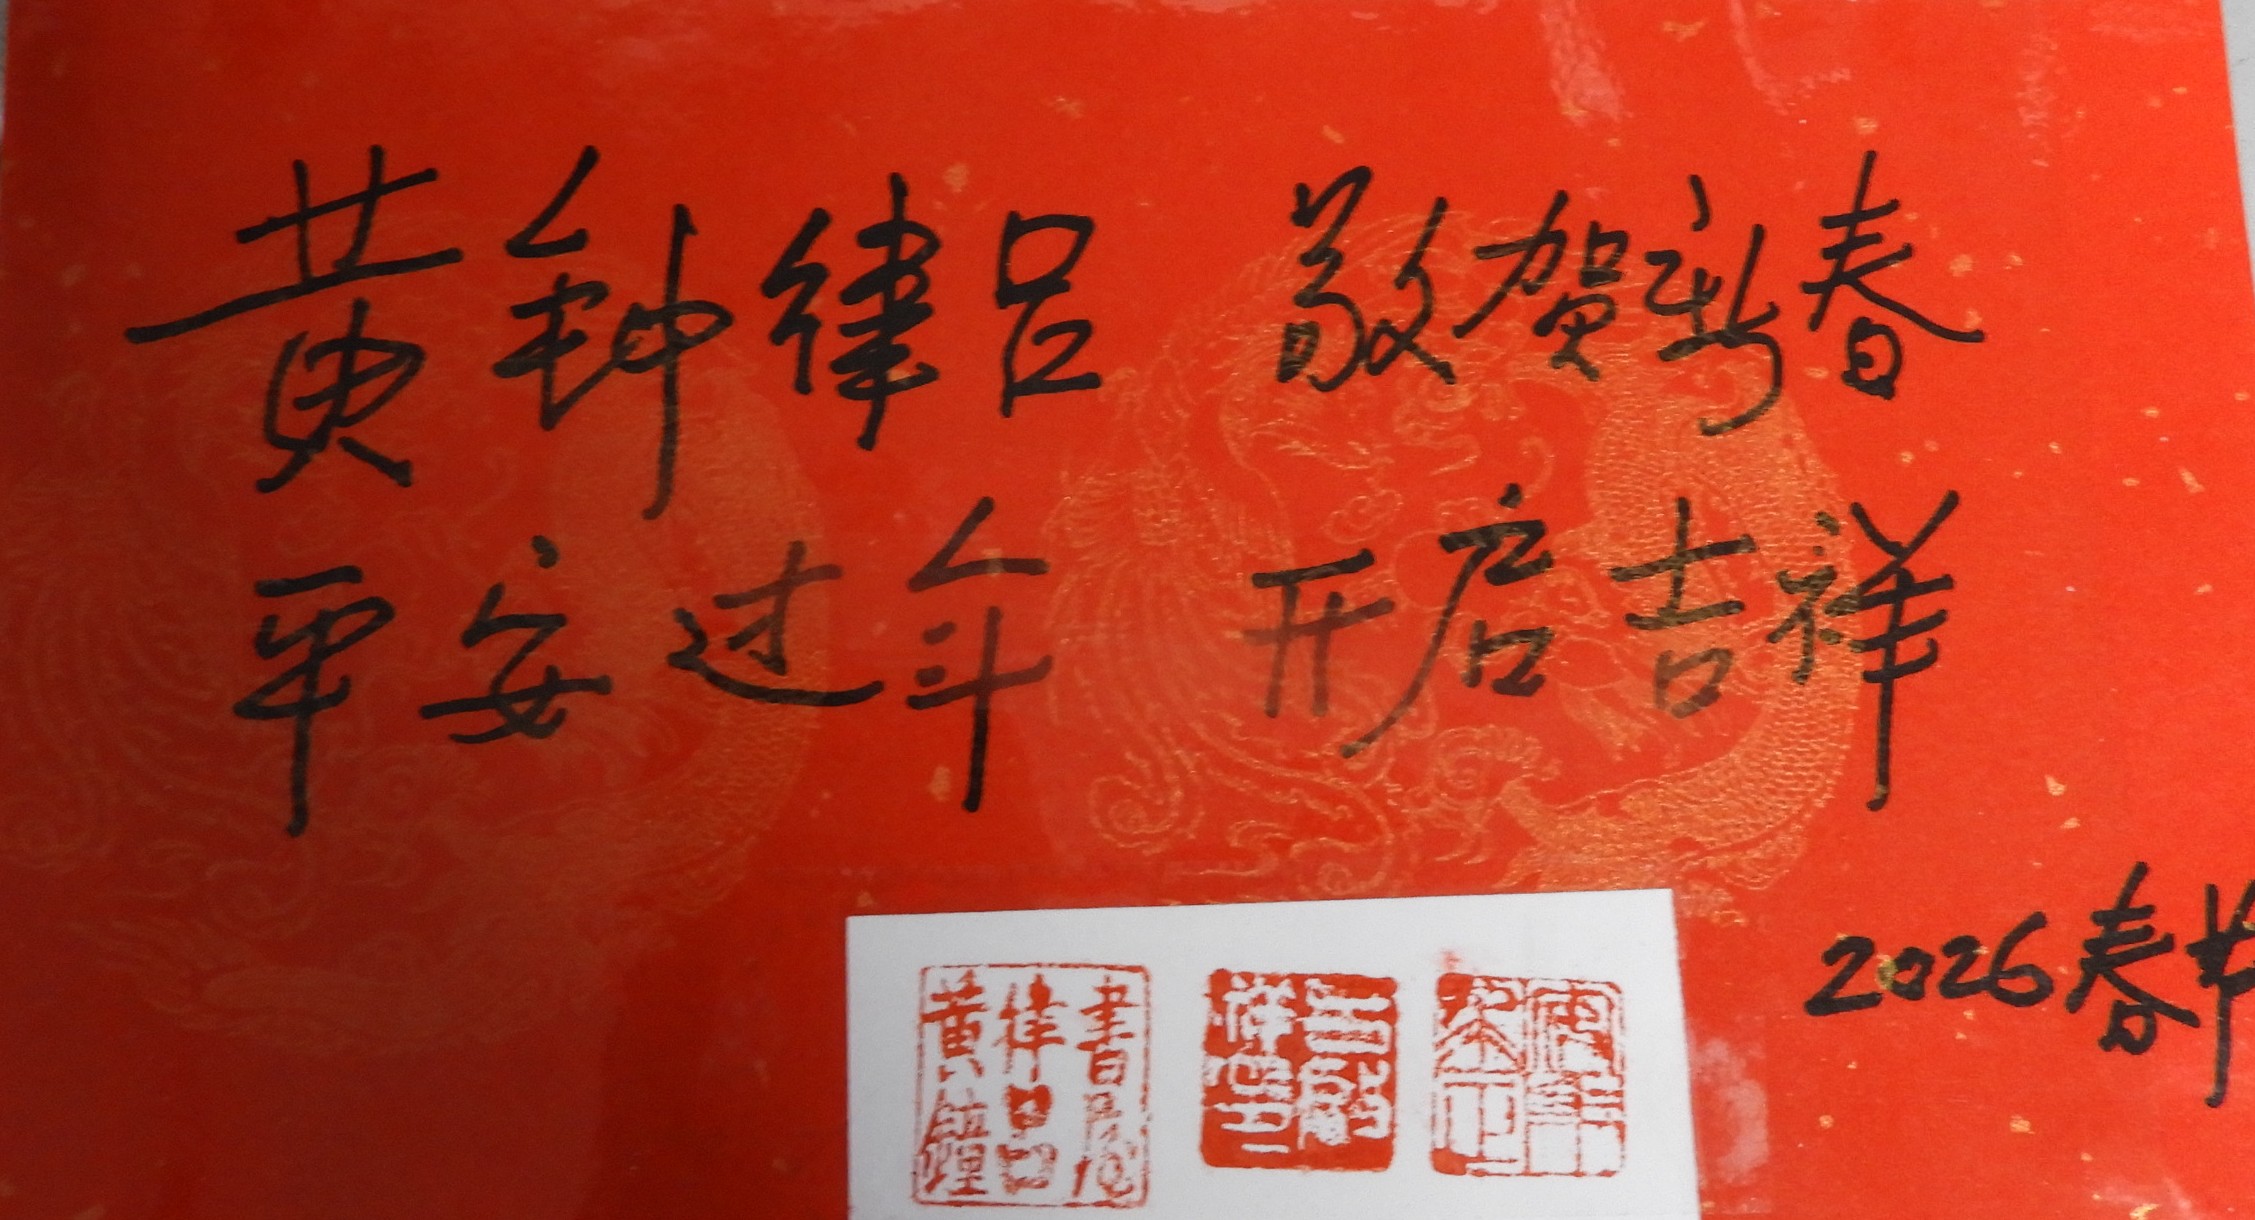 黄钟律吕 敬贺新春
平安过年 开启吉祥
2026春节
黄鐘律吕書屋